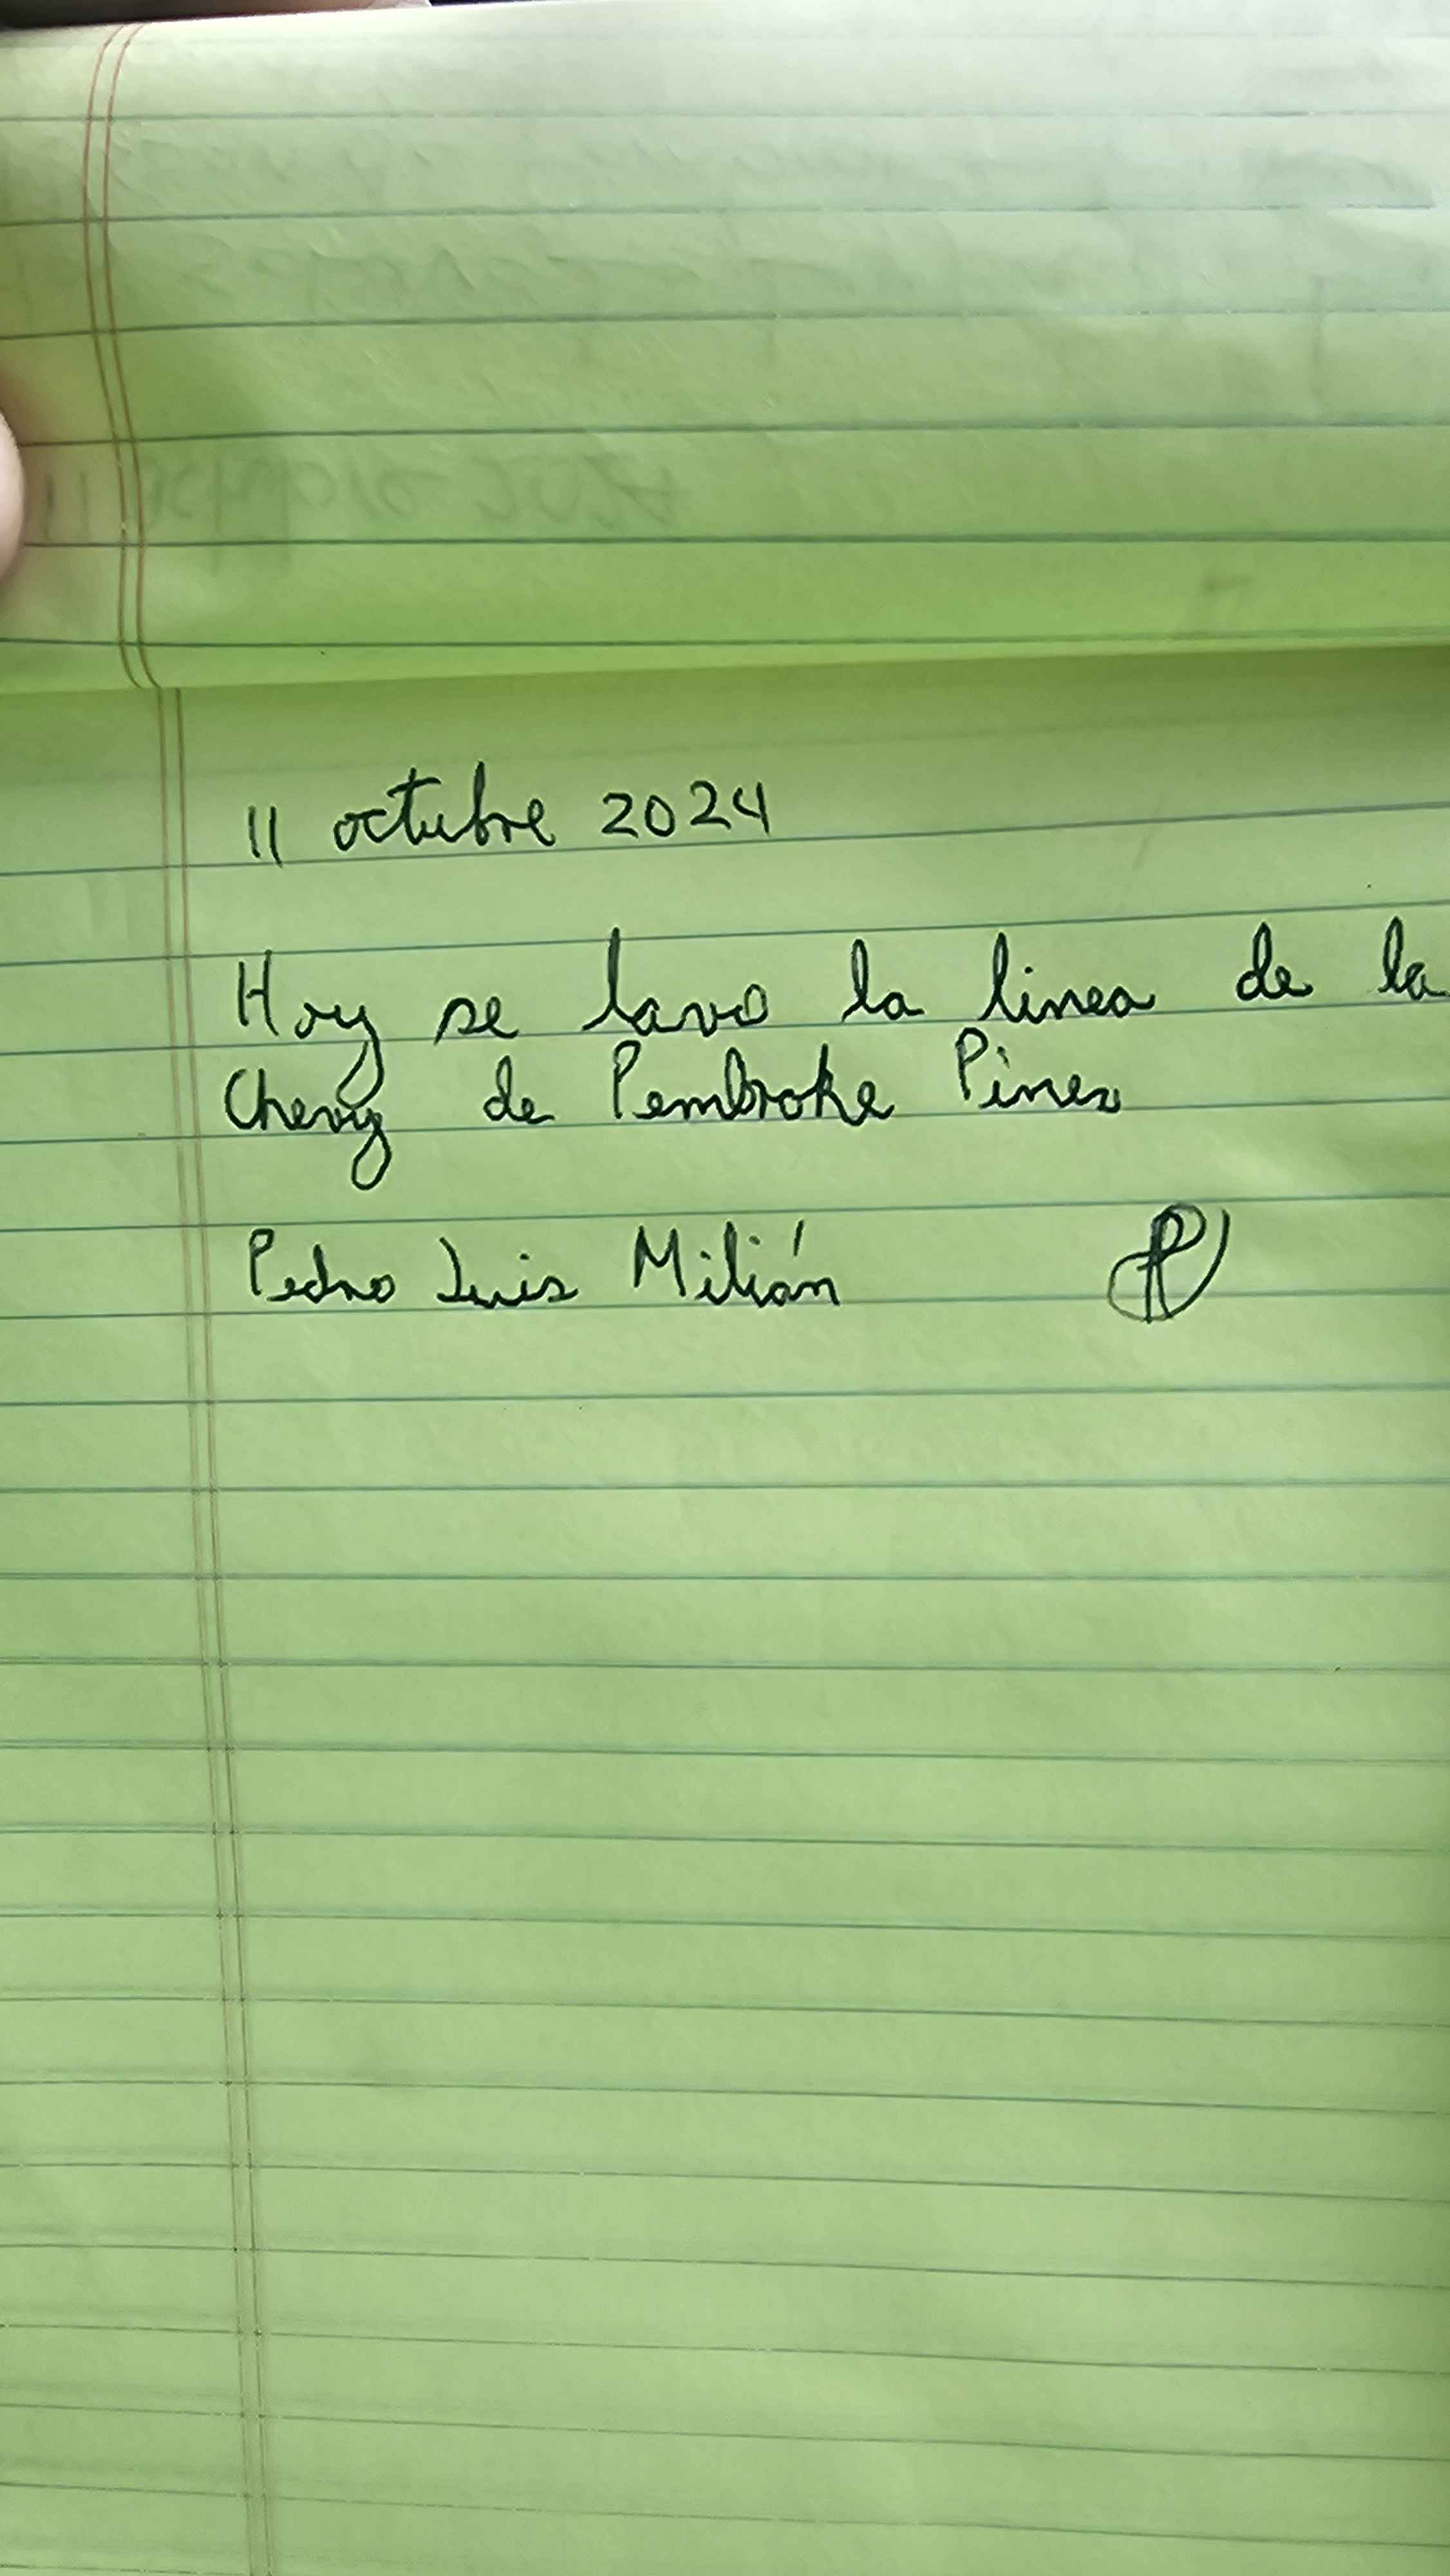 11 octubre 2024
Hoy se lavo la linea de la
Chevy de Pembroke Pines
Pedro Luis Milián